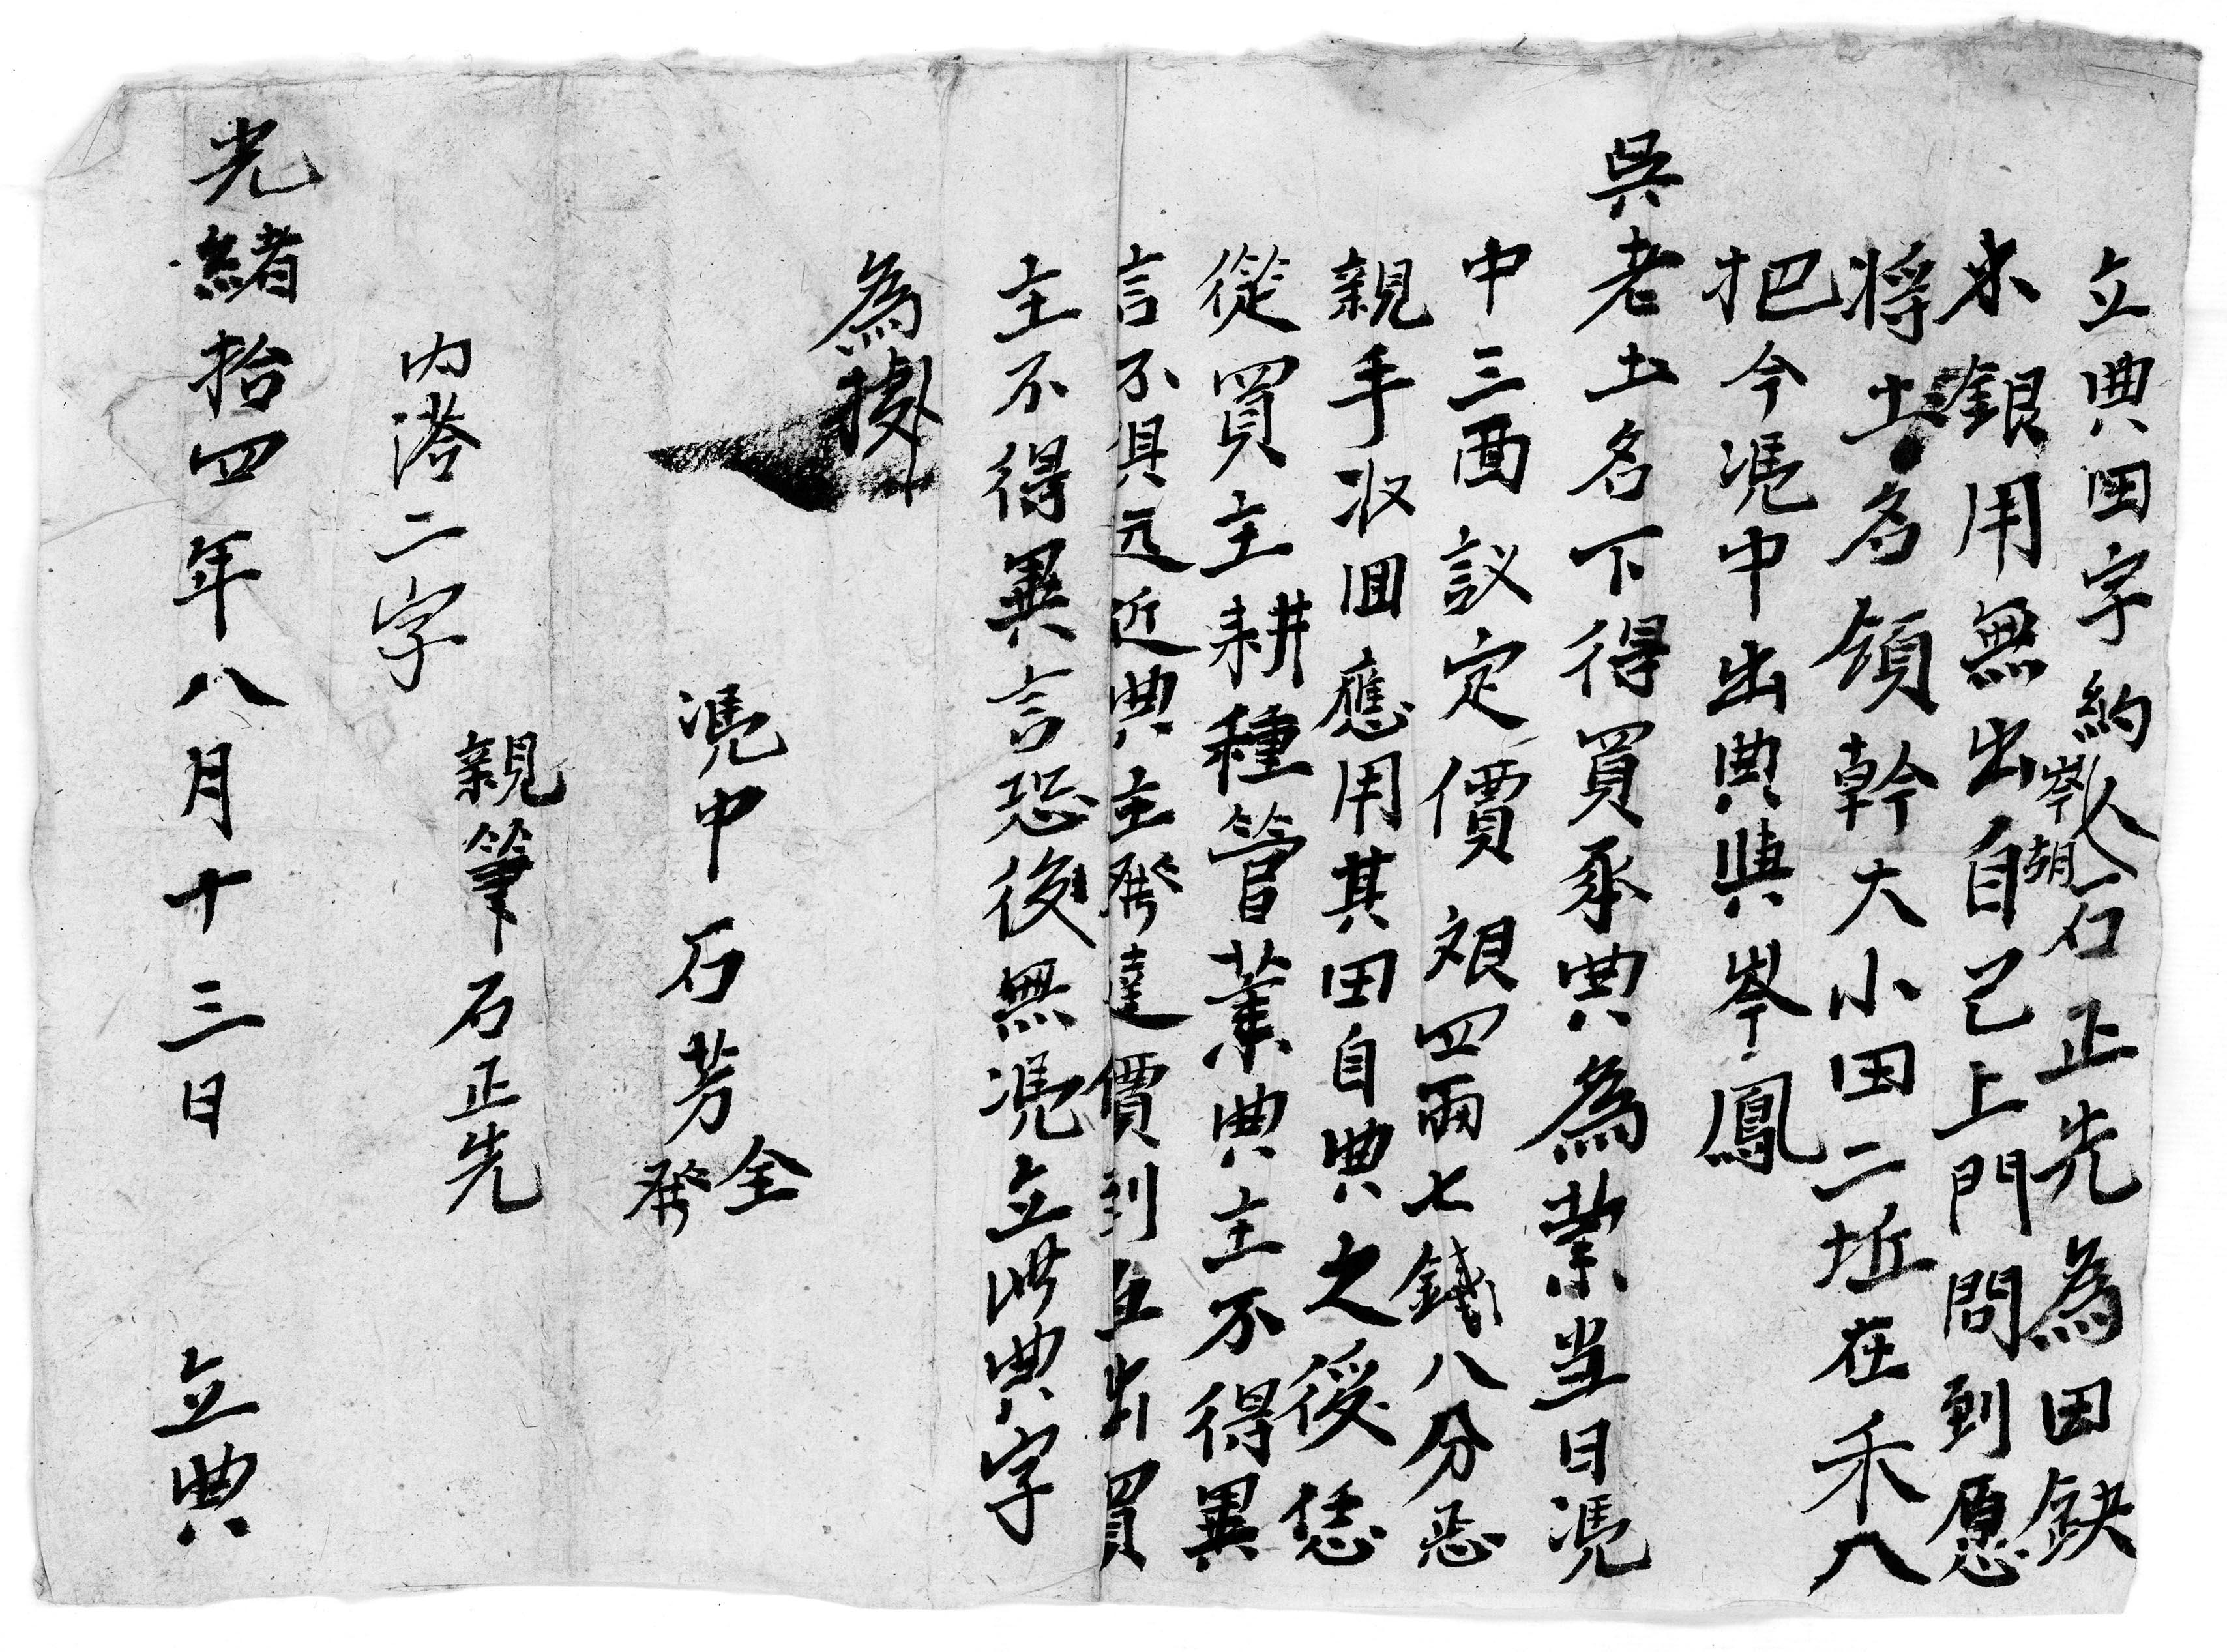 立典田字約人岑朝石正先為田缺
水銀用無出自己上門問到愿
将土名領幹大小田二坵在禾八
把今慿中出典與岑鳳
吳老土名下得買承典為業当日慿
中三面議定價艮四兩七錢八分
親手收回應用其田自典之後恁
從買主耕種管業典主不得異
言不俱远近典主發達價到互出買
主不得異言恐後無慿立此典字
為據
慿中 石芳全發
親筆石正先
内添二字
光緒拾四年八月十三日 立典